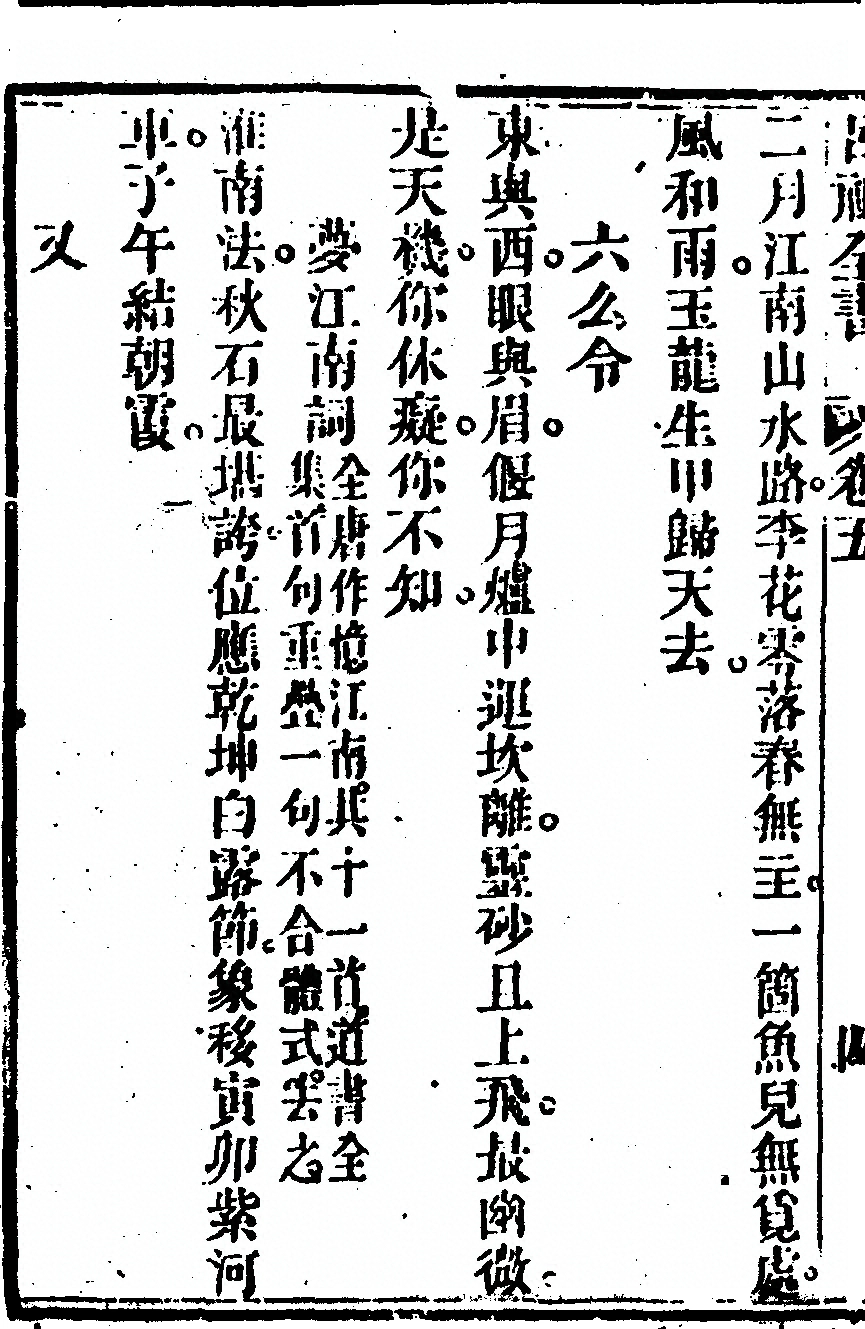 呂祖全書 卷五 四
二月江南山水路李花零落春無主一箇魚兒無覓處
風和雨玉龍生甲歸天去
六么令
東與西眼與眉偃月爐中運坎離靈砂且上飛最幽微
是天機你休癡你不知
夢江南詞
全唐作憶江南共十一首道書全
集首句重疊一句不合體式丟之
淮南法秋石最堪誇位應乾坤白露節象移寅卯紫河
車子午結朝霞
又